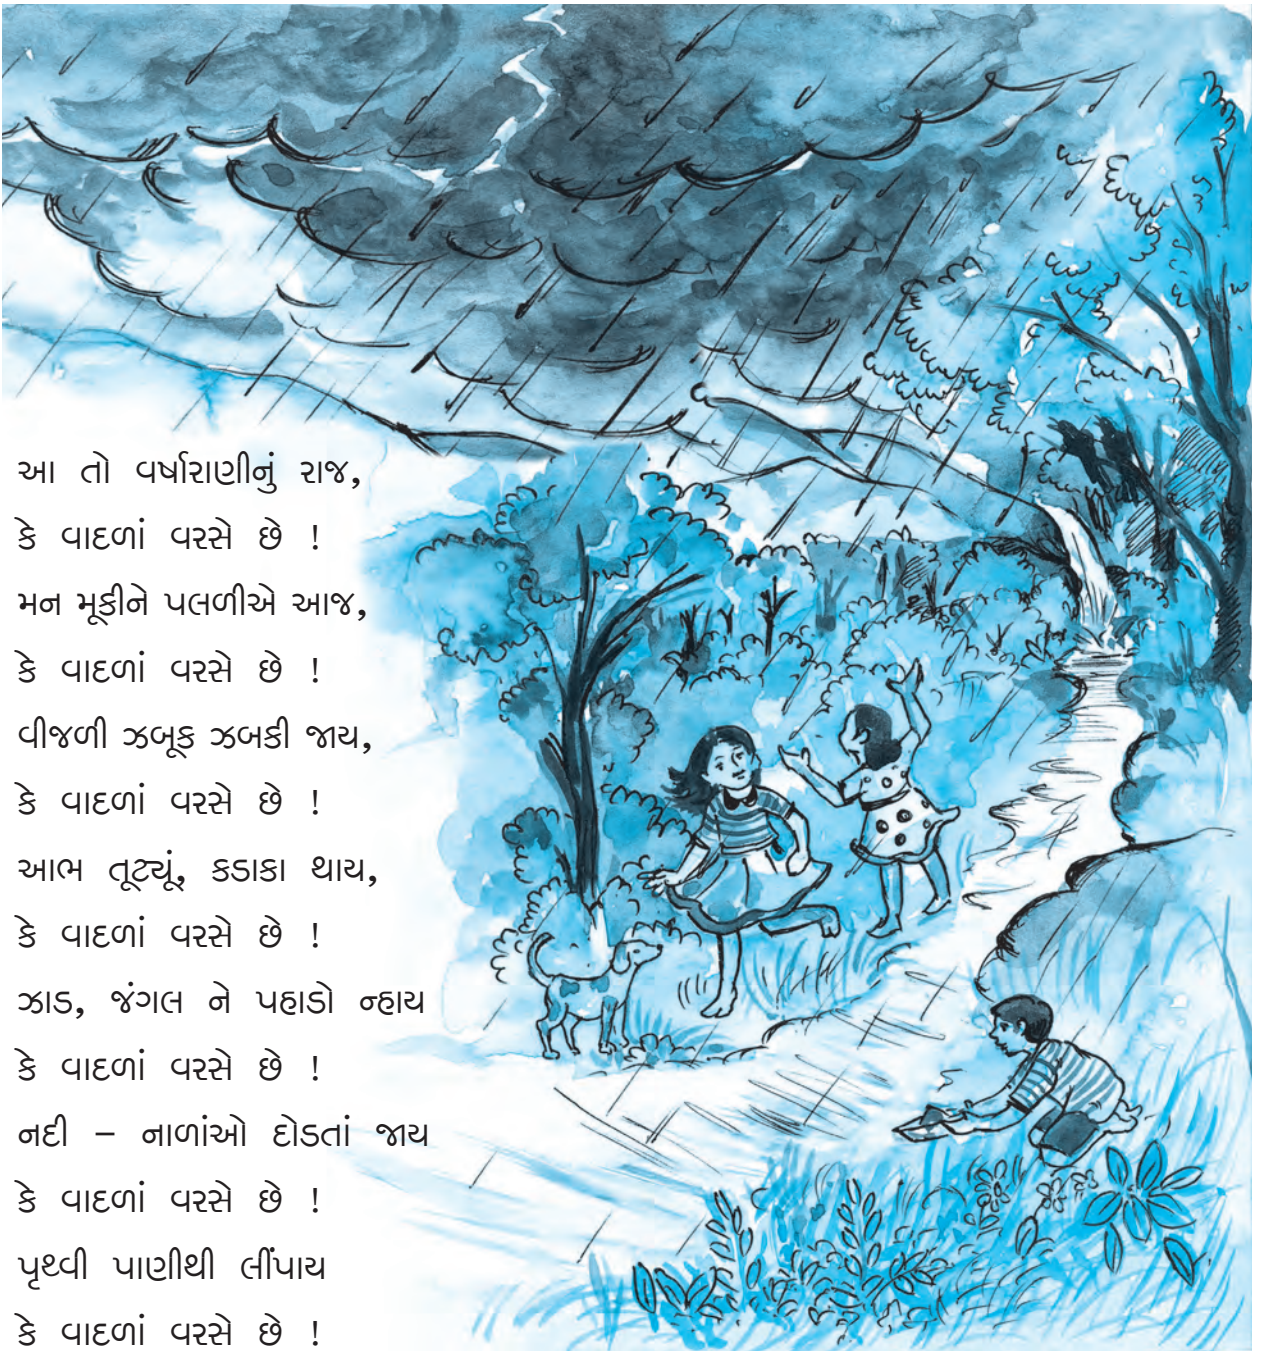 આ તો વર્ષારાણીનું રાજ,
કે વાદળાં વરસે છે !
મન મૂકીને પલળીએ આજ,
કે વાદળાં વરસે છે !
વીજળી ઝબૂક ઝબકી જાય,
કે વાદળાં વરસે છે !
આભ તૂટ્યું, કડાકા થાય,
કે વાદળાં વરસે છે !
ઝાડ, જંગલ ને પહાડો ન્હાય
કે વાદળાં વરસે છે !
નદી – નાળાંઓ દોડતાં જાય
કે વાદળાં વરસે છે !
પૃથ્વી પાણીથી લીંપાય
કે વાદળાં વરસે છે !